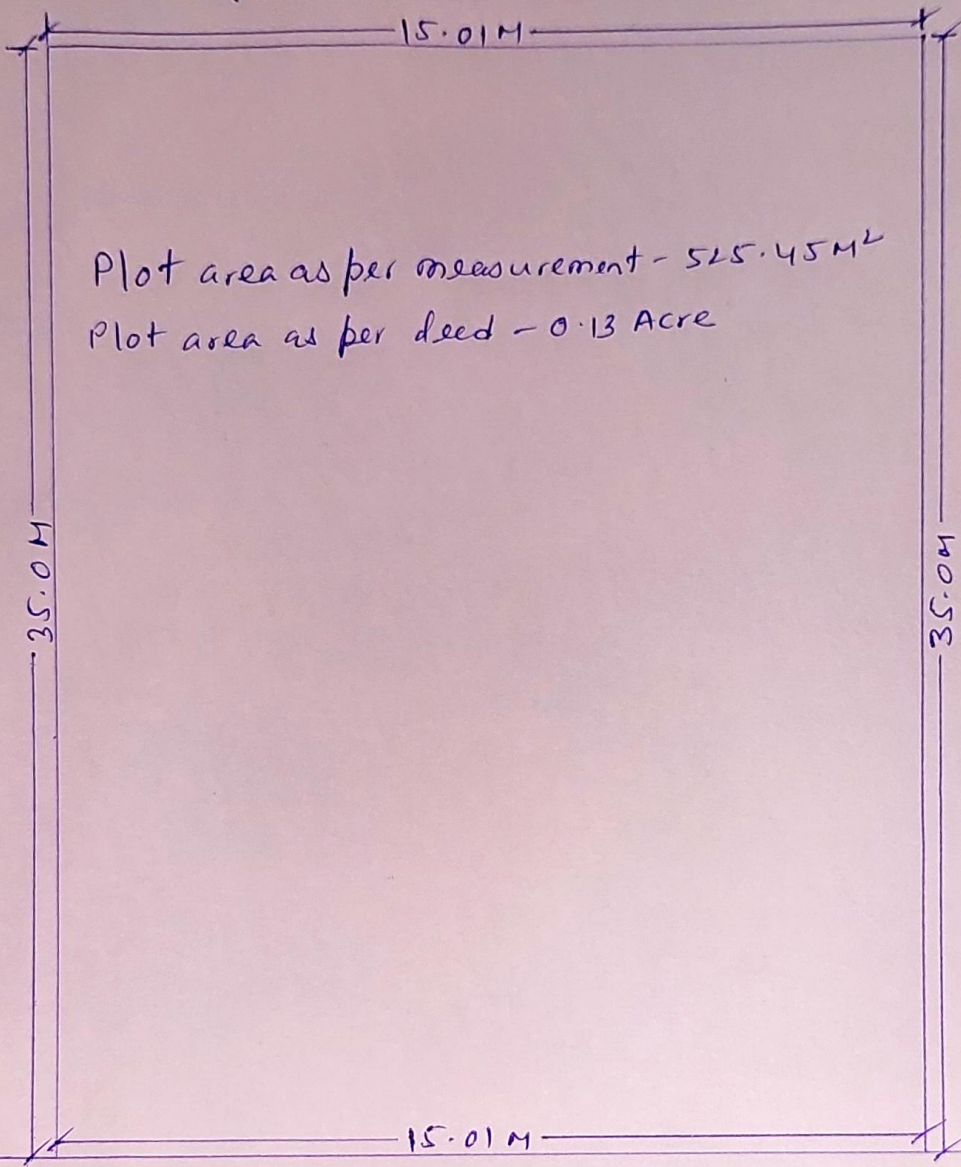 15.01M
Plot area as per measurement - 525.45 M²
Plot area as per deed - 0.13 Acre
35.0M
35.0M
15.01M